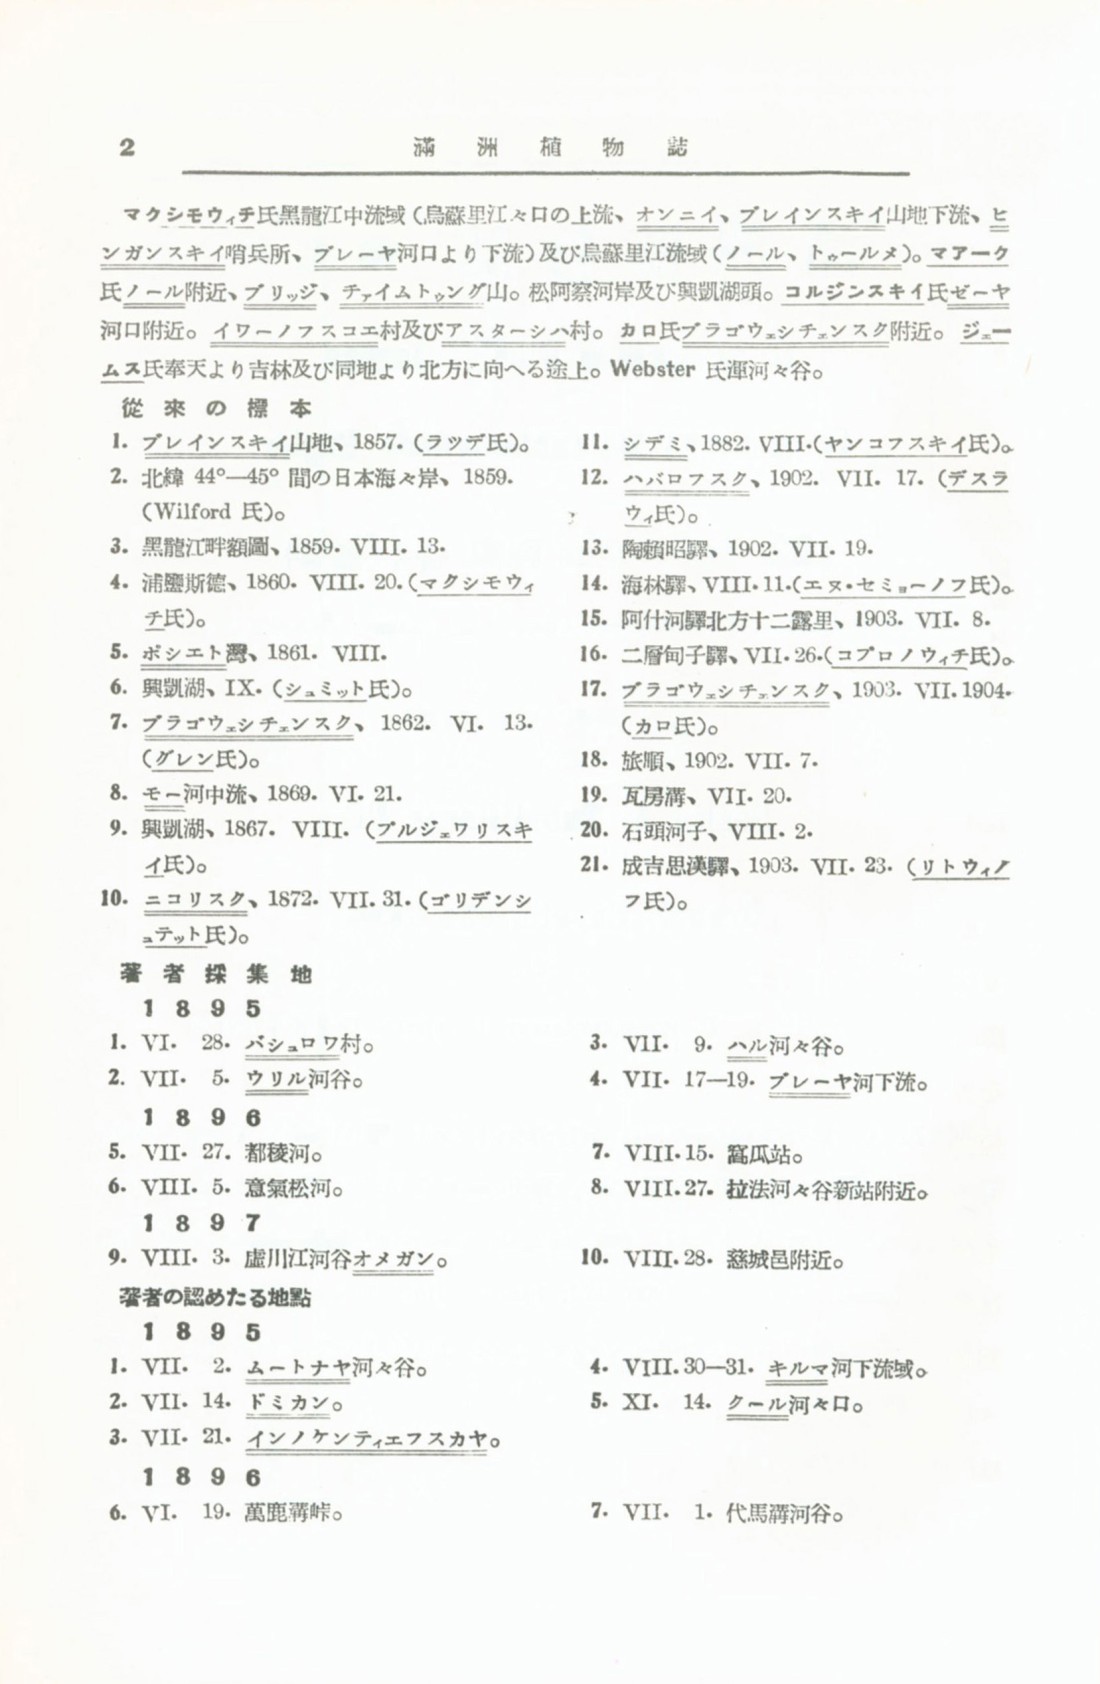 2
滿洲植物誌
マクシモウィチ氏黑龍江中流域(烏蘇里江々口の上流、オンニイ、ブレインスキイ山地下流、ヒ
ンガンスキイ哨兵所、ブレーヤ河口より下流)及び烏蘇里江流域(ノール、トゥールメ)。マアーク
氏ノール附近、ブリッジ、チァイムトゥング山。松阿察河岸及び興凱湖頭。コルジンスキイ氏ゼーヤ
河口附近。イワーノフスコエ村及びアスターシハ村。カロ氏ブラゴウェシチェンスク附近。ジェー
ムス氏奉天より吉林及び同地より北方に向へる途上。Webster 氏渾河々谷。
從來の標本
1. ブレインスキイ山地、1857. (ラツデ氏)。
2. 北緯 44°—45° 間の日本海々岸、1859.
(Wilford 氏)。
3. 黑龍江畔額圖、1859. VIII. 13.
4. 浦鹽斯德、1860. VIII. 20.(マクシモウィ
チ氏)。
5. ポシエト灣、1861. VIII.
6. 興凱湖、IX. (シュミット氏)。
7. ブラゴウェシチェンスク、1862. VI. 13.
(グレン氏)。
8. モー河中流、1869. VI. 21.
9. 興凱湖、1867. VIII. (プルジェワリスキ
イ氏)。
10. ニコリスク、1872. VII. 31. (ゴリデンシ
ュテット氏)。
11. シデミ、1882. VIII.(ヤンコフスキイ氏)。
12. ハバロフスク、1902. VII. 17. (デスラ
ウィ氏)。
13. 陶賴昭驛、1902. VII. 19.
14. 海林驛、VIII. 11.(エヌ・セミョーノフ氏)。
15. 阿什河驛北方十二露里、1903. VII. 8.
16. 二層甸子驛、VII. 26.(コプロノウィチ氏)。
17. ブラゴウェシチェンスク、1903. VII. 1904.
(カロ氏)。
18. 旅順、1902. VII. 7.
19. 瓦房溝、VII. 20.
20. 石頭河子、VIII. 2.
21. 成吉思漢驛、1903. VII. 23. (リトウィノ
フ氏)。
著者採集地
1895
1. VI. 28. バシュロワ村。
2. VII. 5. ウリル河谷。
3. VII. 9. ハル河々谷。
4. VII. 17—19. ブレーヤ河下流。
1896
5. VII. 27. 都稜河。
6. VIII. 5. 意氣松河。
7. VIII. 15. 窩瓜站。
8. VIII. 27. 拉法河々谷新站附近。
1897
9. VIII. 3. 虛川江河谷オメガン。
10. VIII. 28. 慈城邑附近。
著者の認めたる地點
1895
1. VII. 2. ムートナヤ河々谷。
2. VII. 14. ドミカン。
3. VII. 21. インノケンティエフスカヤ。
4. VIII. 30—31. キルマ河下流域。
5. XI. 14. クール河々口。
1896
6. VI. 19. 萬鹿溝峠。
7. VII. 1. 代馬溝河谷。